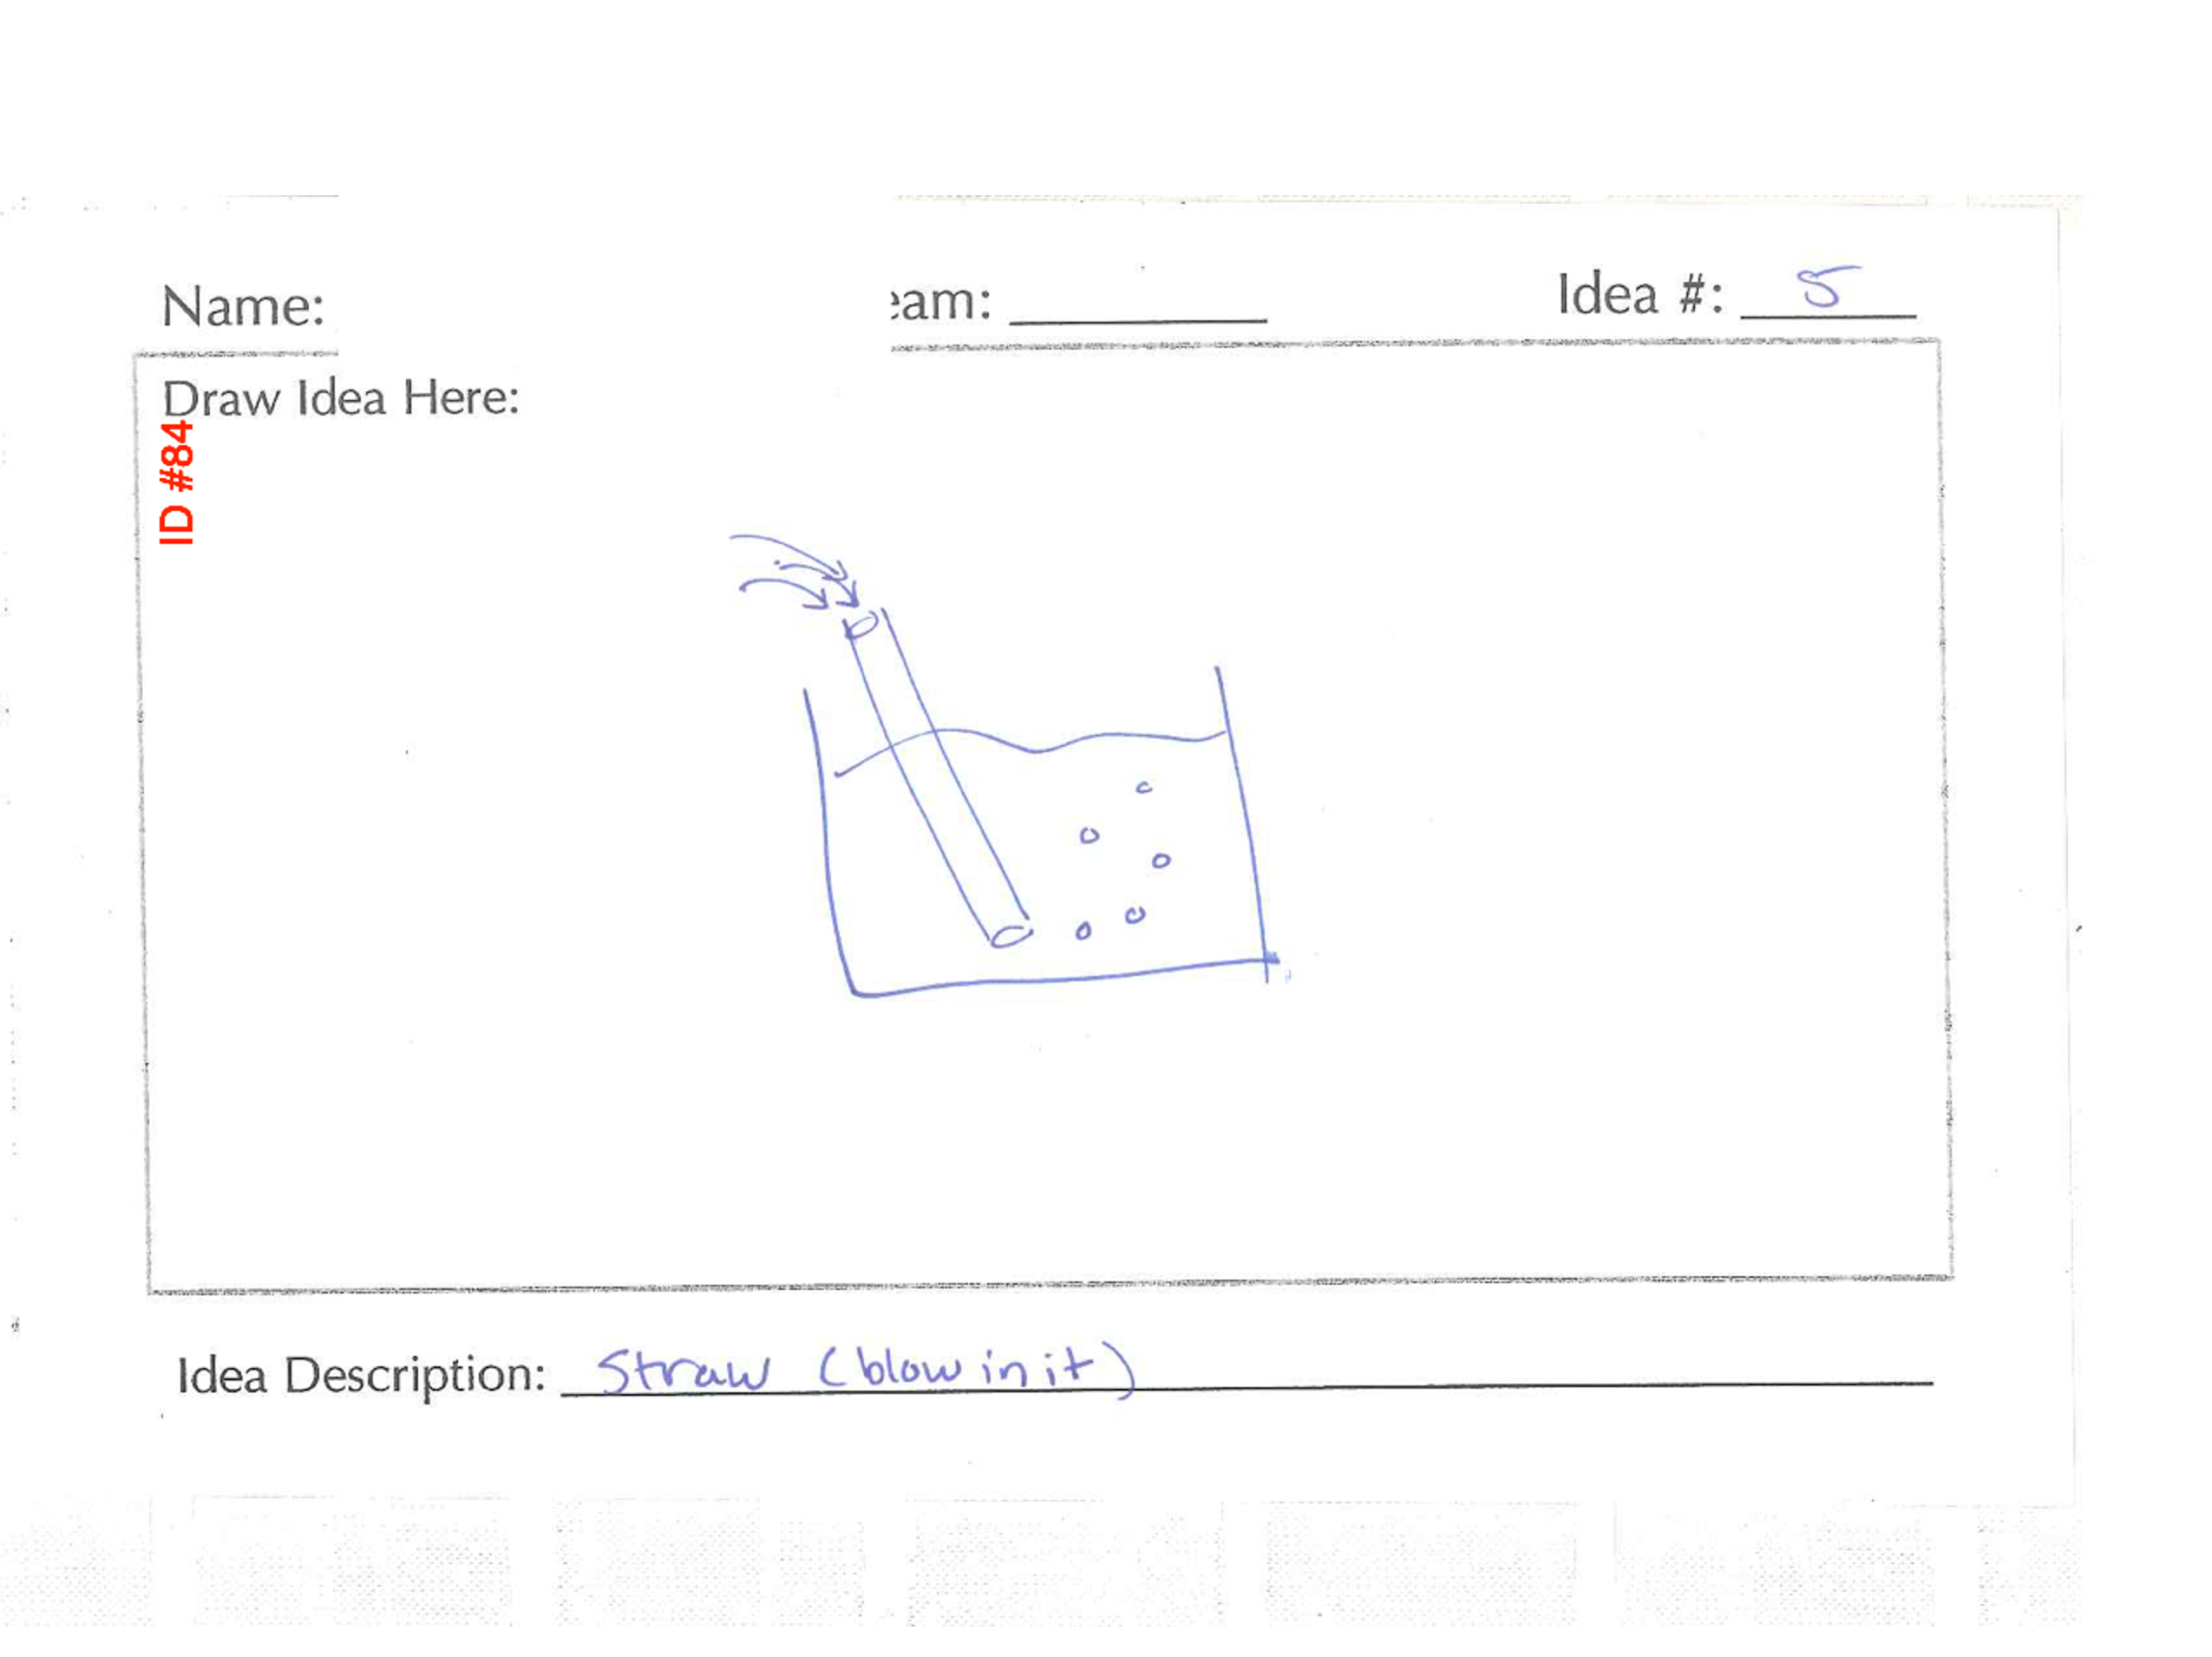 Name: eam: Idea #: 5
Draw Idea Here:
ID #84
Idea Description: Straw (blow in it)